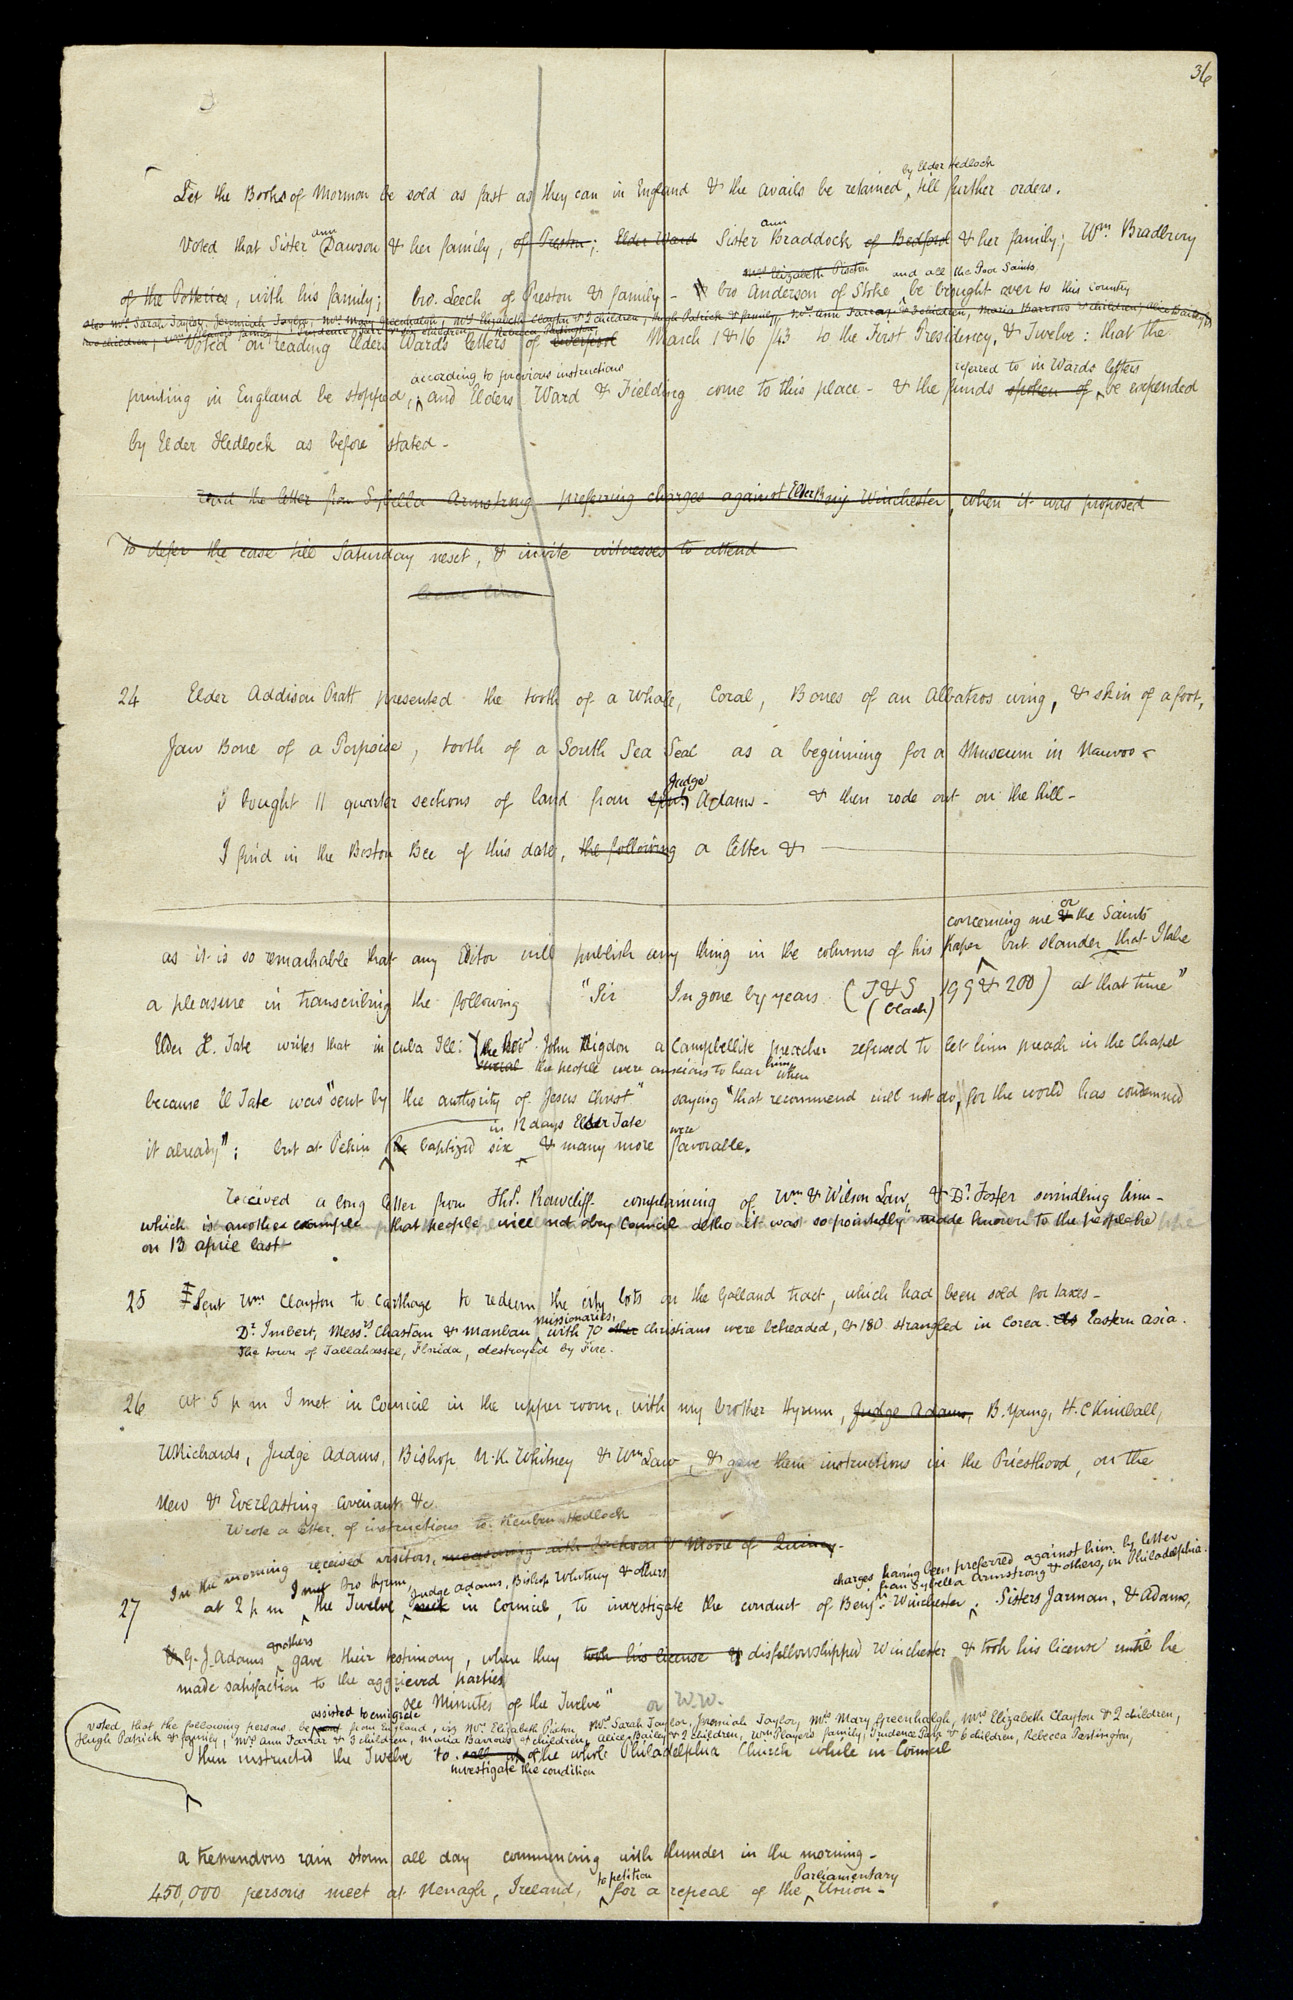 36
by Elder Hedlock
Let the Books of Mormon be sold as fast as they can in England & the avails be retained till further orders.
ann ann
Voted that Sister Dawson & her family, of Preston; Elder Ward Sister Braddock of Bedford & her family; Wm. Bradbury
Mrs Elizabeth Pixton and all the Poor Saints
of the Potteries, with his family; bro. Leech of Preston & family - bro Anderson of Stoke be brought over to this country
also Mrs Sarah Taylor, Jeremiah Taylor, Mrs Mary Greenhalgh, Mrs Elizabeth Clayton & 2 children, Hugh Patrick & family, Mrs. Ann Farrar & 3 children, Maria Barrows & children, Alice Bailey &
two children, Wm Players family, Prudence Parr & six children, Rebecca Partington,
Voted on reading Elder Ward's letters of Liverpool March 1 & 16 /43 to the First Presidency, & Twelve: that the
according to previous instructions referred to in Wards letters
printing in England be stopped, and Elders Ward & Fielding come to this place - & the funds spoken of be expended
by Elder Hedlock as before stated -
read the letter from Sybella Armstrong preferring charges against Elder Benj Winchester, when it was proposed
to defer the case till Saturday next, & invite witnesses to attend
leave line
24 Elder Addison Pratt presented the tooth of a whale, Coral, Bones of an Albatros wing, & skin of a foot,
Jaw Bone of a Porpoise, tooth of a South Sea Seal as a beginning for a Museum in Nauvoo -
Judge
I bought 11 quarter sections of land from Adams - & then rode out on the hill -
I find in the Boston Bee of this date, the following a letter &
concerning me or & the Saints
as it is so remarkable that any Editor will publish any thing in the columns of his paper but slander that I take
a pleasure in transcribing the following "Sir In gone by years (T & S 199 & 200) at that time"
(black)
Elder H. Tate writes that in Cuba Ill: the Rev. John Rigdon a Campbellite preacher refused to let him preach in the Chapel
the people were anxious to hear him when
because El Tate was "sent by the authority of Jesus Christ" saying "that recommend will not do, for the world has condemned
in 12 days Elder Tate were
it already"; but at Pekin he baptized six & many more favorable.
received a long letter from Thos. Rawcliff complaining of Wm & Wilson Law, & Dr. Foster swindling him -
which is another example that people will not obey Council altho it was so pointedly made known to the people
on 13 april last
25 Sent Wm Clayton to Carthage to redeem the city lots on the Galland tract, which had been sold for taxes -
missionaries,
Dr Imbert, Messrs Chastan & Manban with 70 other Christians were beheaded, & 180 strangled in Corea. Eastern asia.
The town of Tallahassee, Florida, destroyed by Fire.
26 at 5 p m I met in Council in the upper room, with my brother Hyrum, Judge Adams, B. Young, H. C Kimball,
W Richards, Judge Adams, Bishop N. K. Whitney & Wm Law, & gave them instructions in the Priesthood, on the
New & Everlasting Covenant &c.
Wrote a letter of instructions to Reuben Hedlock
In the morning received visitors, measuring with Jackson & Moore of Quincy -
charges having been preferred against him by letter
from Sybella Armstrong & others, in Philadelphia.
I met bro Hyrum, Judge adams, Bishop Whitney & others
27 at 2 p m the Twelve met in Council, to investigate the conduct of Benjn. Winchester. Sisters Jarman, & Adams,
& others
& G. J. Adams gave their testimony, when they took his license & disfellowshipped Winchester & took his license until he
made satisfaction to the aggrieved parties
"see Minutes of the Twelve" or W. W.
assisted to emigrate
voted, that the following persons be sent from England, viz Mrs. Elizabeth Pixton, Mrs. Sarah Taylor, Jeremiah Taylor, Mrs Mary Greenhalgh, Mrs Elizabeth Clayton & 2 children,
Hugh Patrick & family, Mrs Ann Farrar & 3 children, Maria Barrows & children, Alice Bailey & 2 children, Wm Players family, Prudence Parr & 6 children, Rebecca Partington,
then instructed the Twelve to call up the whole Philadelphia Church while in Council
investigate the condition
a tremendous rain storm all day commencing with thunder in the morning -
to petition Parliamentary
450,000 persons meet at Nenagh, Ireland, for a repeal of the Union -